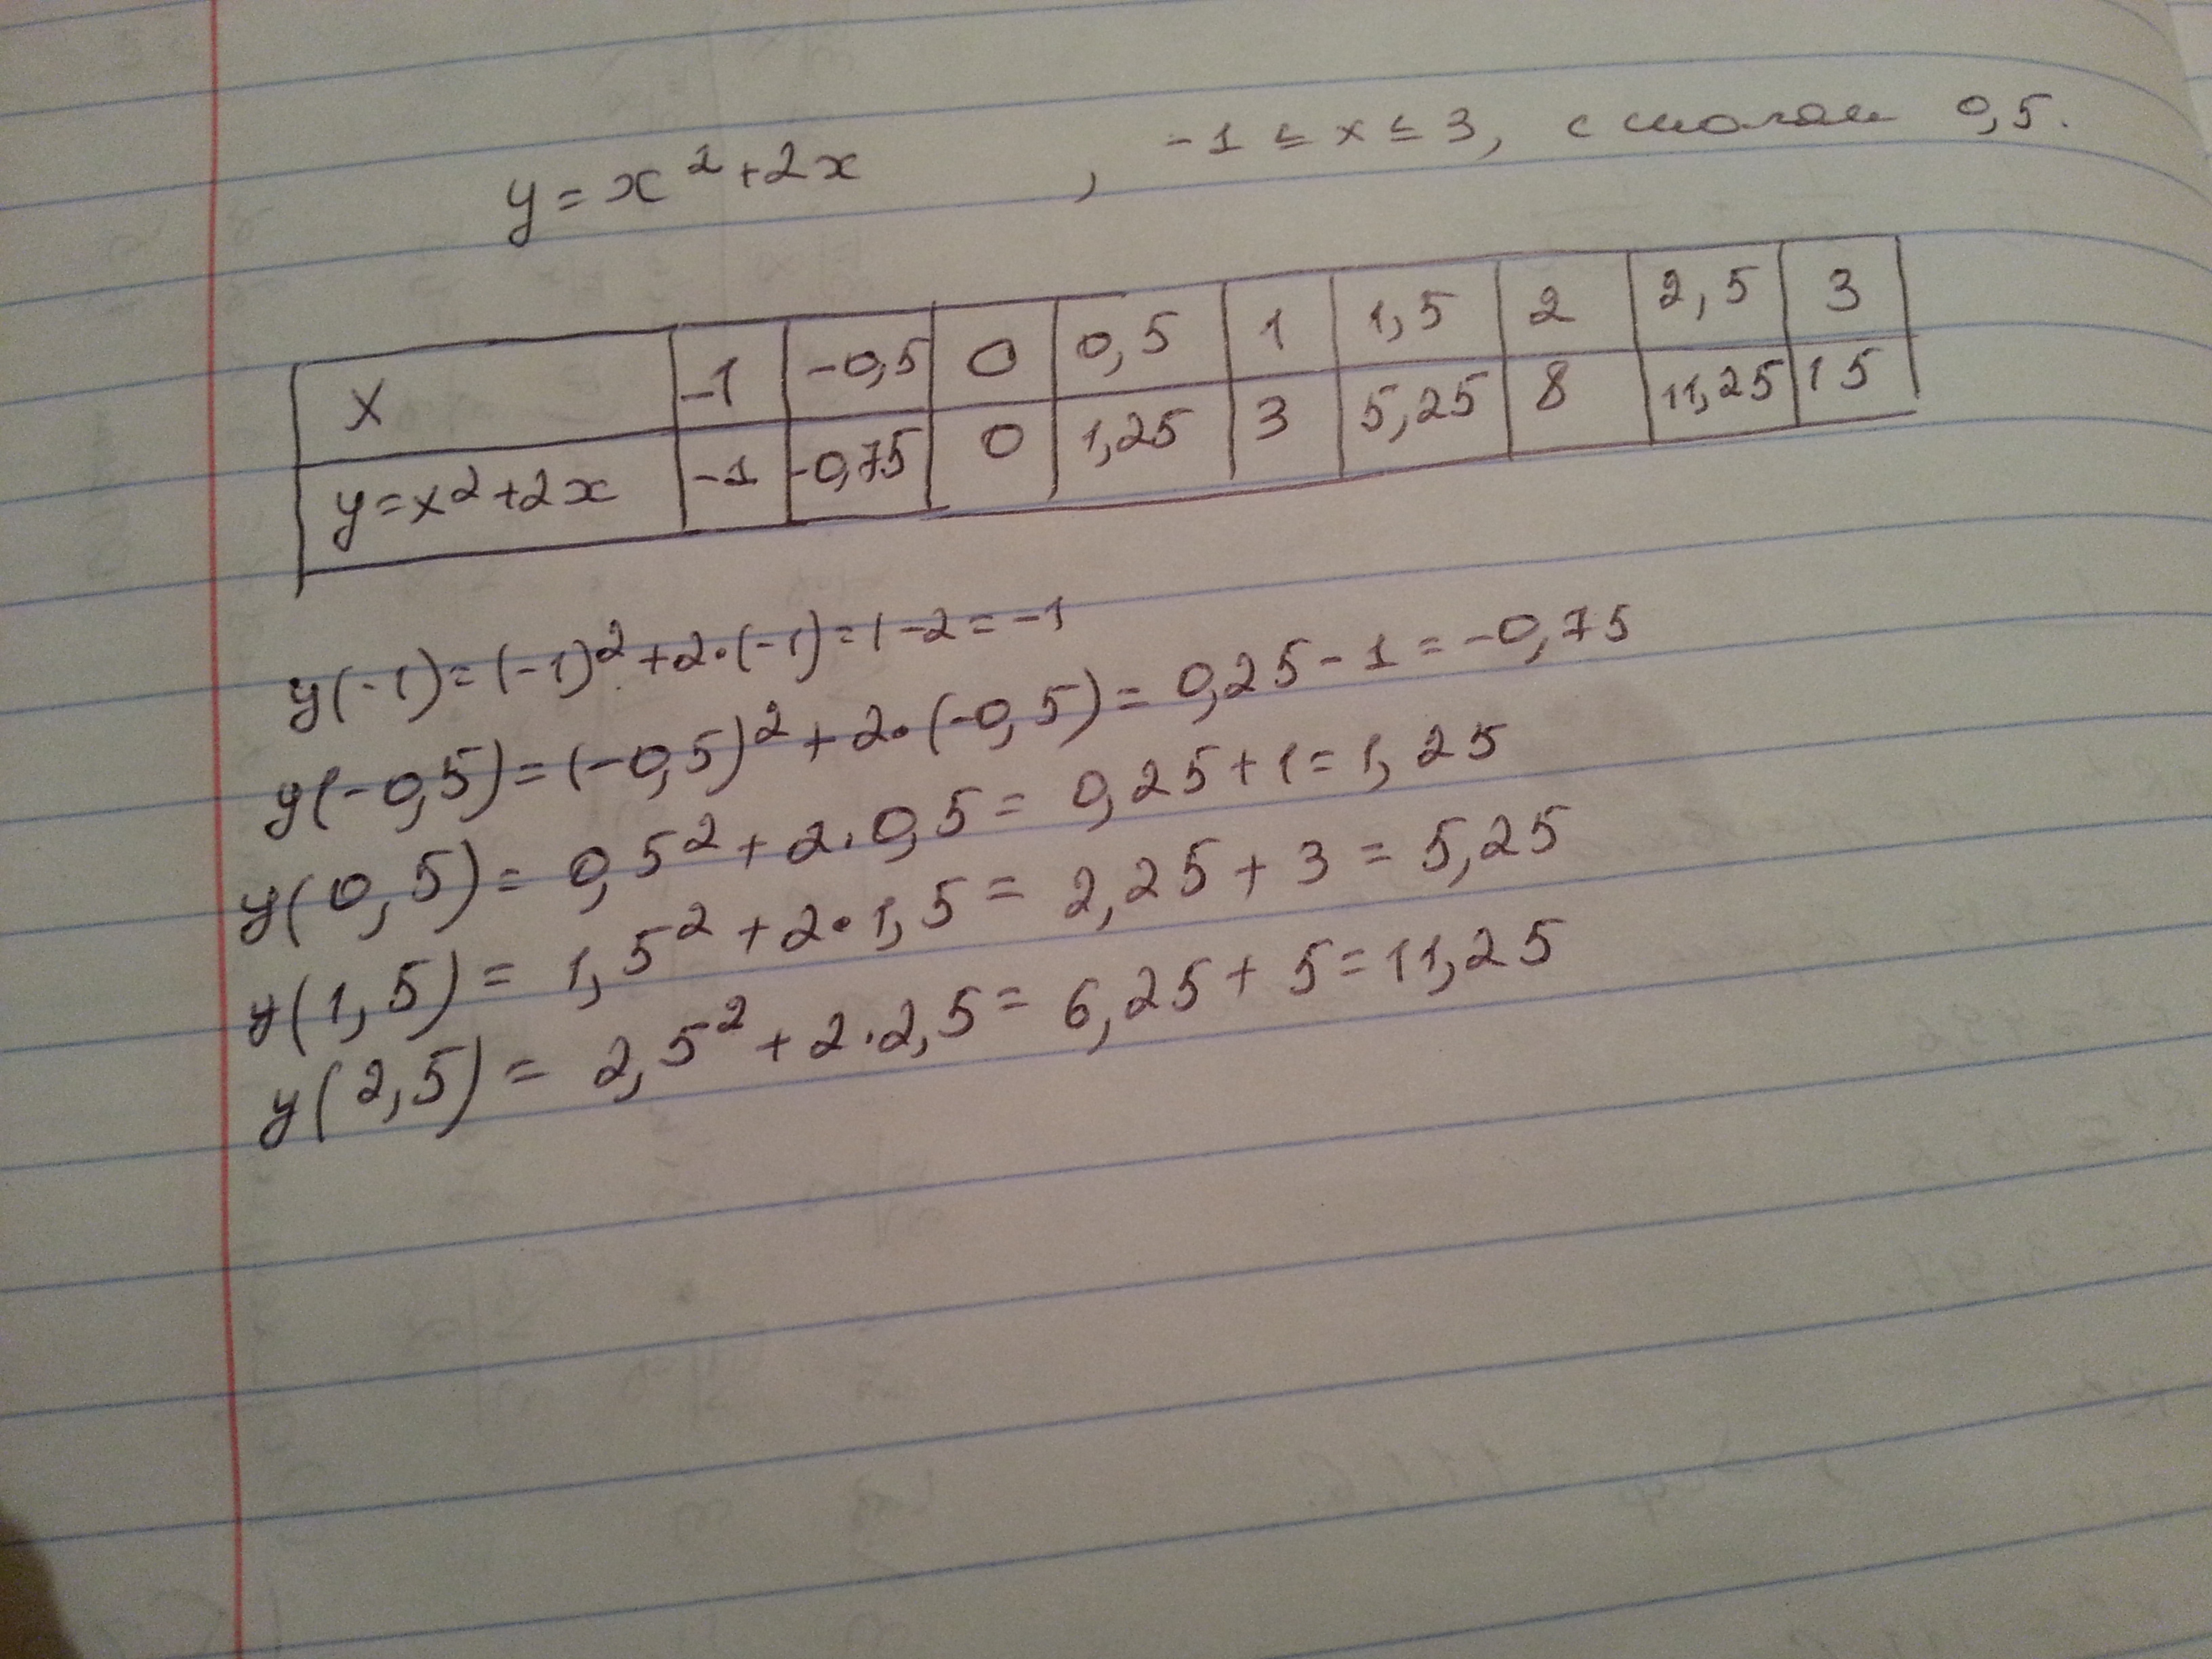 y = x² + 2x , -1 ≤ x ≤ 3, с шагом 0,5.
x -1 -0,5 0 0,5 1 1,5 2 2,5 3
y = x² + 2x -1 -0,75 0 1,25 3 5,25 8 11,25 15
y(-1) = (-1)² + 2·(-1) = 1 - 2 = -1
y(-0,5) = (-0,5)² + 2·(-0,5) = 0,25 - 1 = -0,75
y(0,5) = 0,5² + 2·0,5 = 0,25 + 1 = 1,25
y(1,5) = 1,5² + 2·1,5 = 2,25 + 3 = 5,25
y(2,5) = 2,5² + 2·2,5 = 6,25 + 5 = 11,25